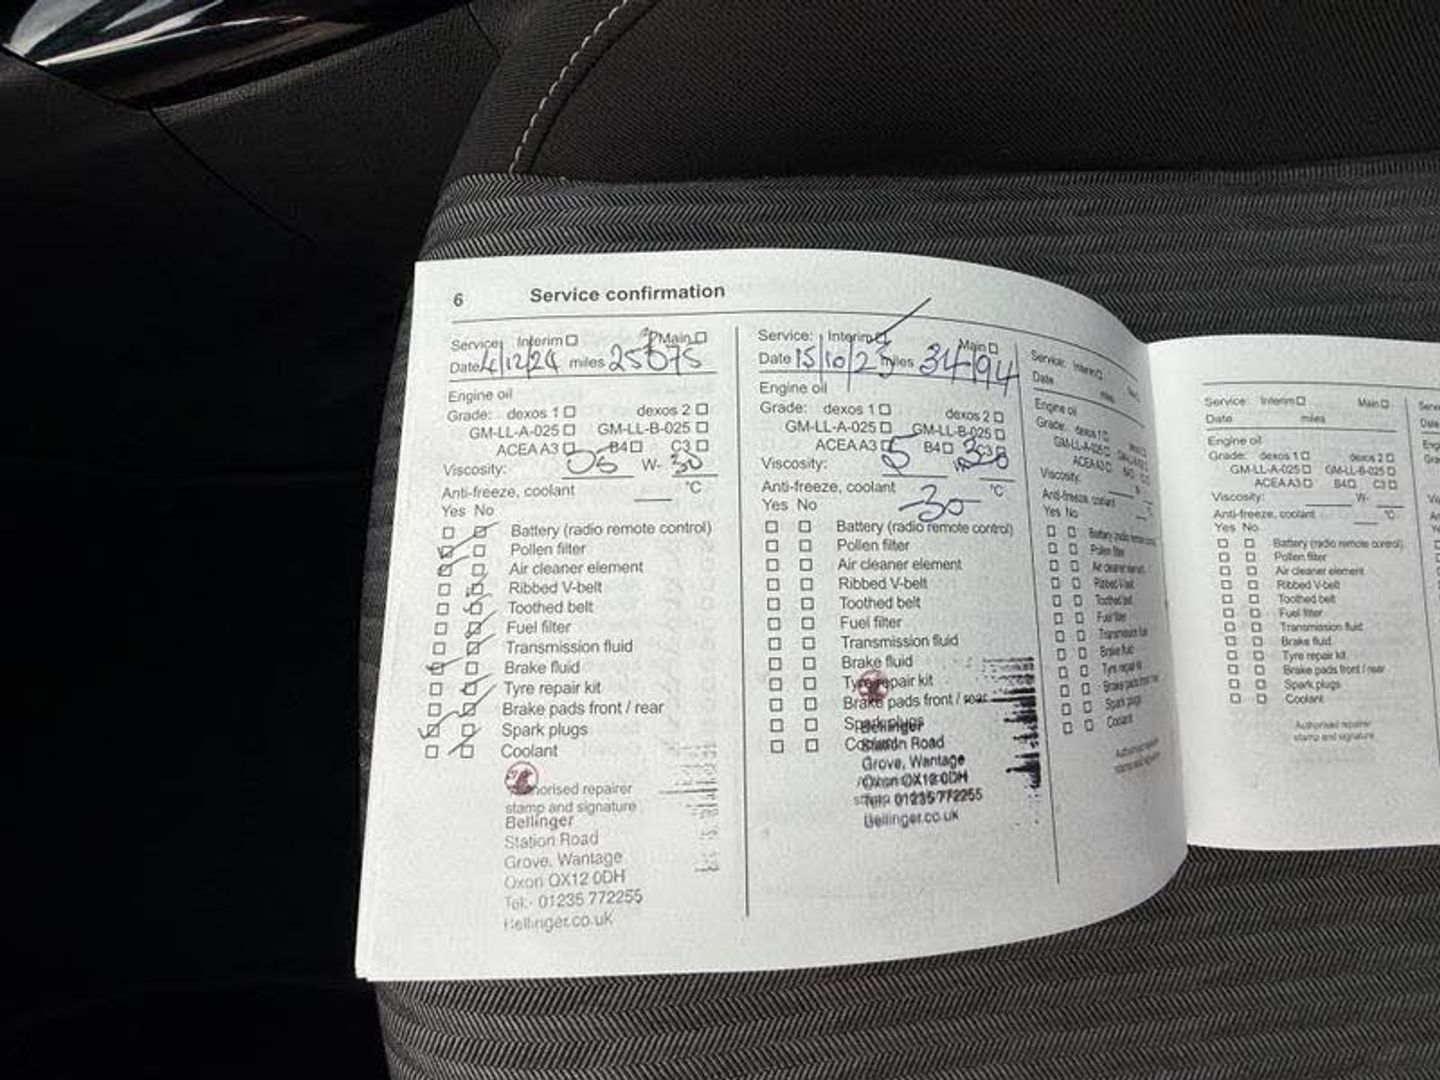 6 Service confirmation
Service: Interim Main
Date 4/12/24 miles 25075
Engine oil
Grade: dexos 1 dexos 2
GM-LL-A-025 GM-LL-B-025
ACEA A3 B4 C3
Viscosity: 05 W- 30
Anti-freeze, coolant °C
Yes No
Battery (radio remote control)
Pollen filter
Air cleaner element
Ribbed V-belt
Toothed belt
Fuel filter
Transmission fluid
Brake fluid
Tyre repair kit
Brake pads front / rear
Spark plugs
Coolant
Authorised repairer
stamp and signature
Bellinger
Station Road
Grove, Wantage
Oxon OX12 0DH
Tel:- 01235 772255
Bellinger.co.uk
Service: Interim Main
Date 15/10/25 miles 34194
Engine oil
Grade: dexos 1 dexos 2
GM-LL-A-025 GM-LL-B-025
ACEA A3 B4 C3
Viscosity: 5 W- 30
Anti-freeze, coolant -30 °C
Yes No
Battery (radio remote control)
Pollen filter
Air cleaner element
Ribbed V-belt
Toothed belt
Fuel filter
Transmission fluid
Brake fluid
Tyre repair kit
Brake pads front / rear
Spark plugs
Coolant
Bellinger
Station Road
Grove, Wantage
Oxon OX12 0DH
Tel:- 01235 772255
Bellinger.co.uk
Service: Interim
Date miles
Engine oil
Grade: dexos 1
GM-LL-A-025
ACEA A3
Viscosity:
Anti-freeze, coolant
Yes No
Battery (radio remote
Pollen filter
Air cleaner element
Ribbed V-belt
Toothed belt
Fuel filter
Transmission fluid
Brake fluid
Tyre repair kit
Brake pads front
Spark plugs
Coolant
Authorised repairer
stamp and signature
Service: Interim Main
Date miles
Engine oil
Grade: dexos 1 dexos 2
GM-LL-A-025 GM-LL-B-025
ACEA A3 B4 C3
Viscosity: W-
Anti-freeze, coolant °C
Yes No
Battery (radio remote control)
Pollen filter
Air cleaner element
Ribbed V-belt
Toothed belt
Fuel filter
Transmission fluid
Brake fluid
Tyre repair kit
Brake pads front / rear
Spark plugs
Coolant
Authorised repairer
stamp and signature